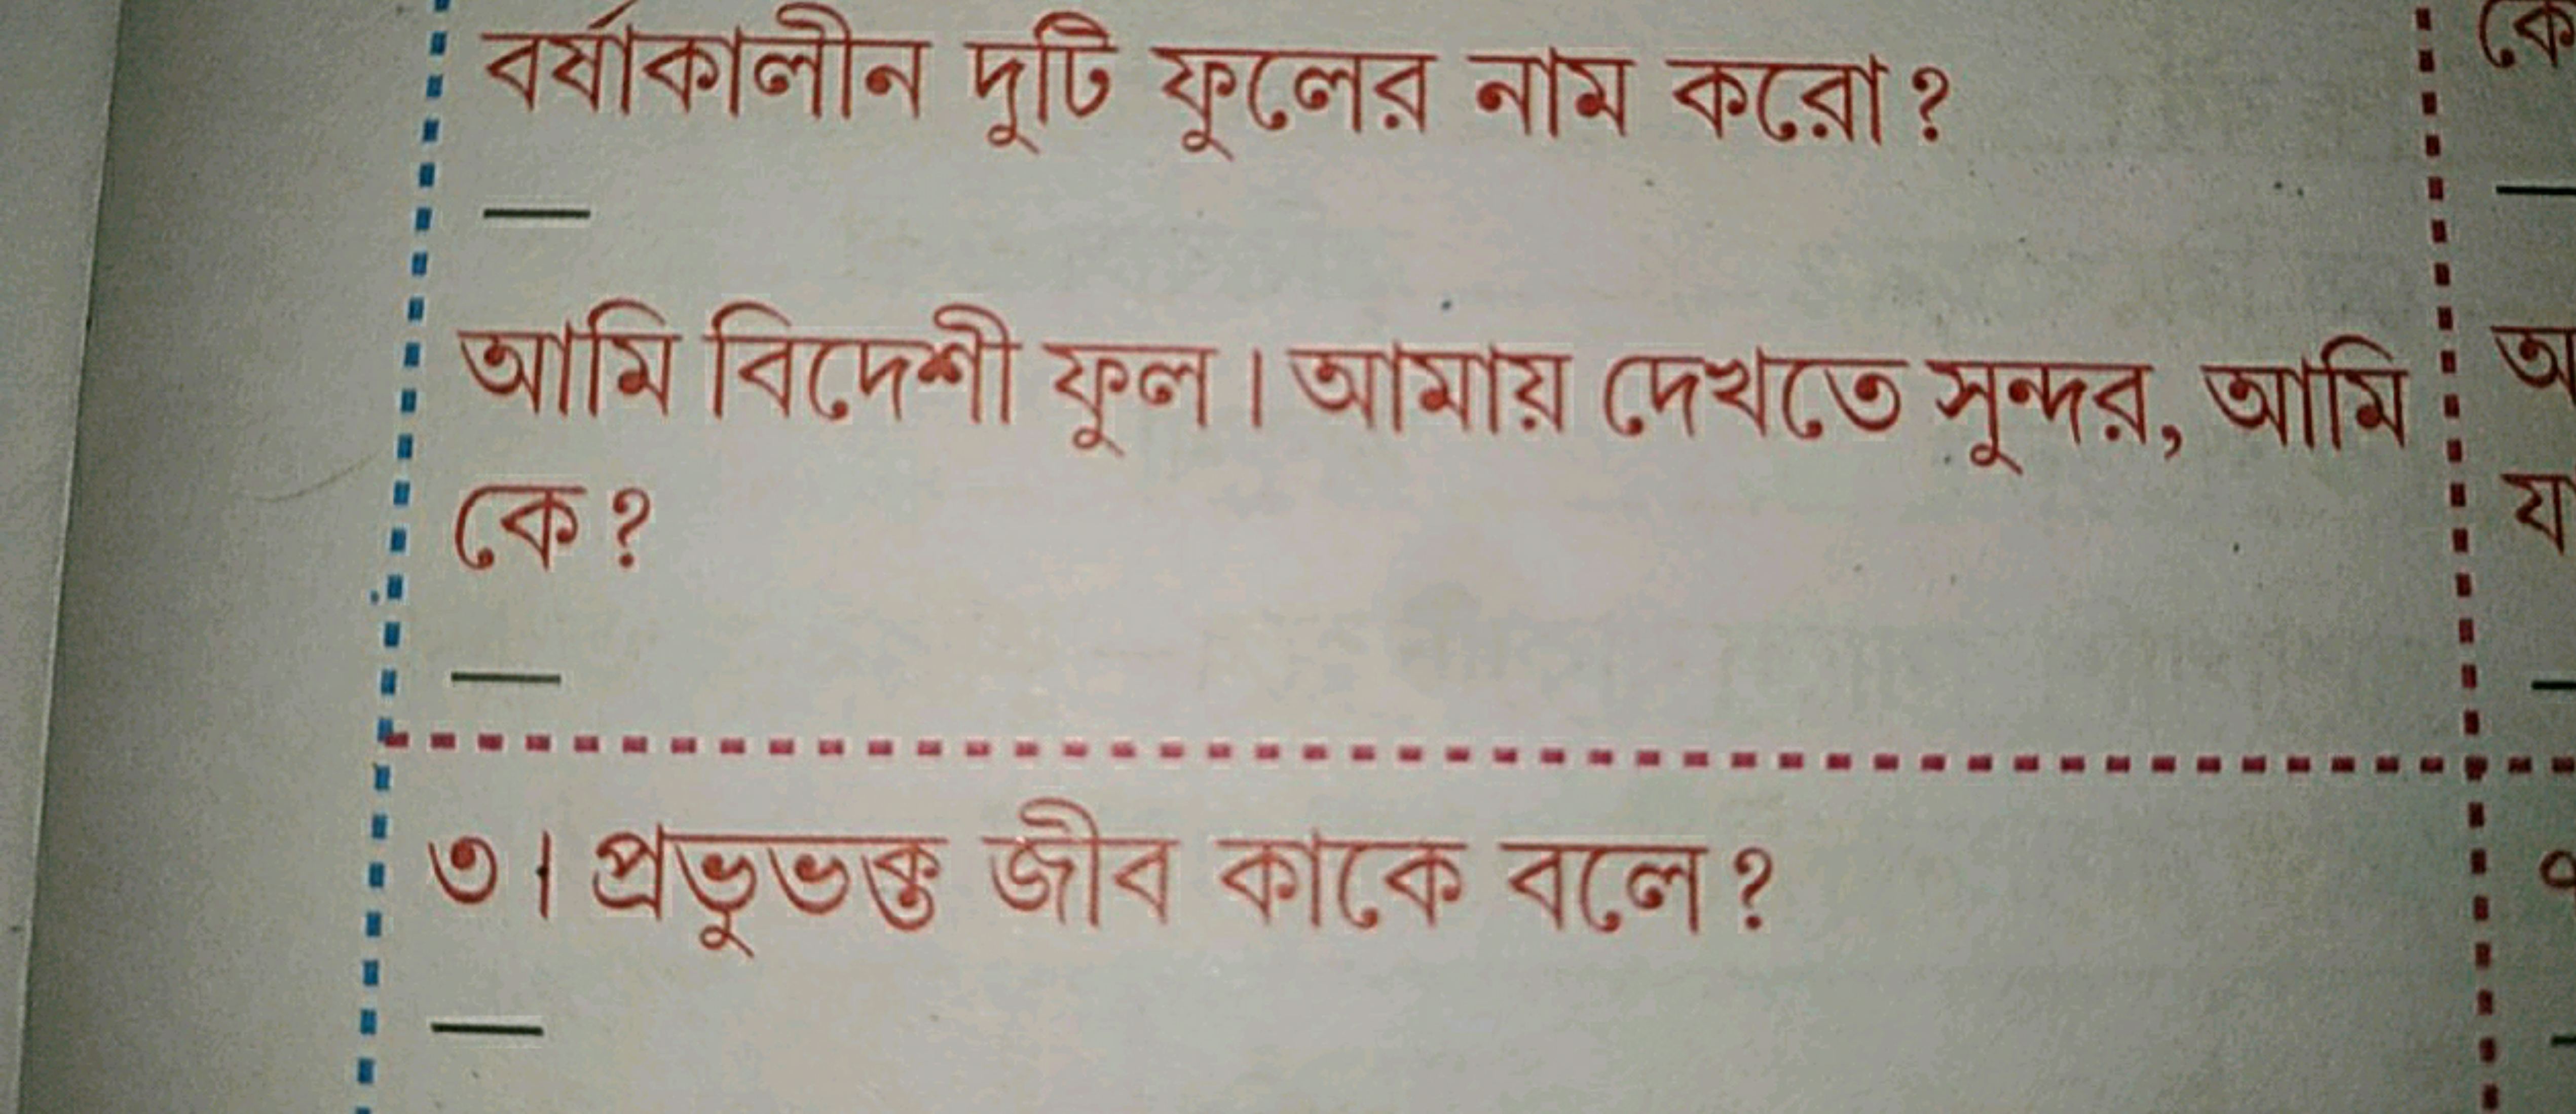 বর্ষাকালীন দুটি ফুলের নাম করো?
—
আমি বিদেশী ফুল। আমায় দেখতে সুন্দর, আমি
কে?
—
৩। প্রভুভক্ত জীব কাকে বলে?
—
কে
—